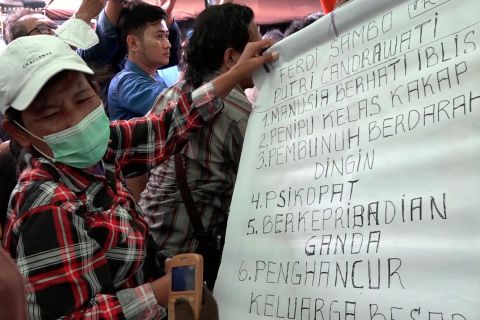 CHALLENGER
FERDI SAMBO
PUTRI CANDRAWATI
1. MANUSIA BERHATI IBLIS
2. PENIPU KELAS KAKAP
3. PEMBUNUH BERDARAH
DINGIN
4. PSIKOPAT
5. BERKEPRIBADIAN
GANDA
6. PENGHANCUR
KELUARGA BESAR